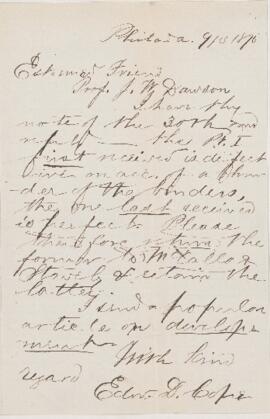 Philada. 9/13 1876
Esteemed Friend
Prof. J. W. Dawson
I have thy
note of the 30th and
reply — the Pt. I
first received is defect
ive on acc. of a blun
der of the binders,
the one last received
is perfect. Please
therefore return the
former to McCalla &
Stavely & retain the
latter.
I send a popular
article on develop
ment.
With kind
regard
Edw. D. Cope